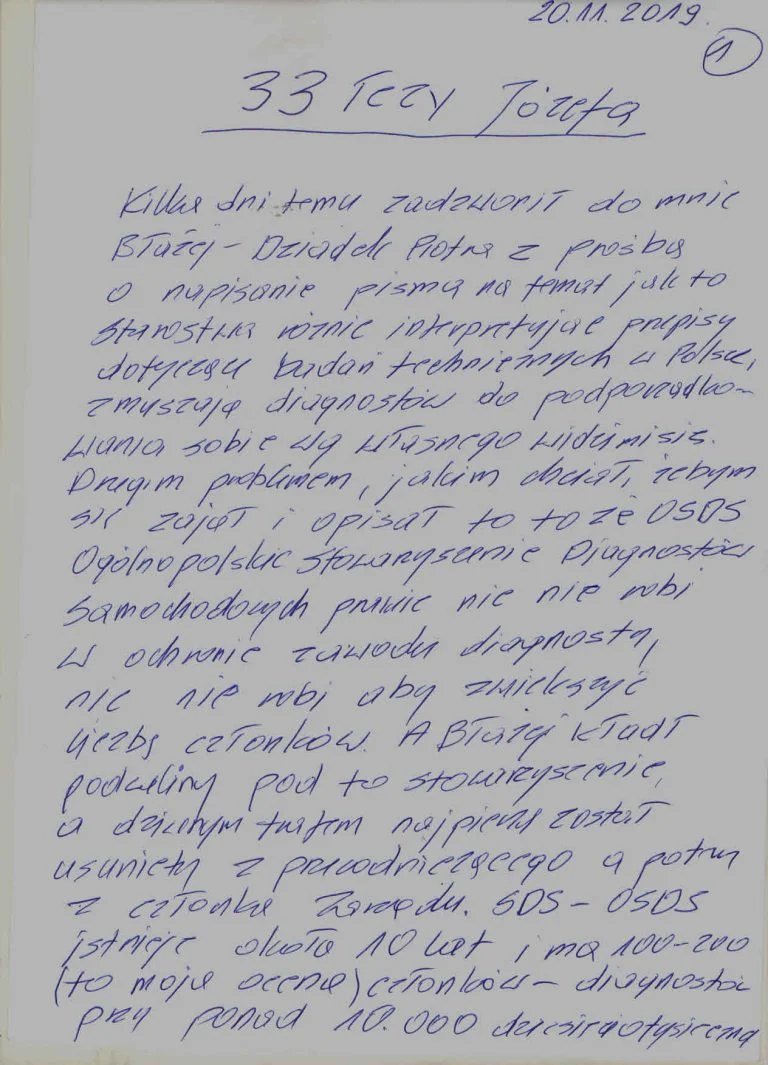 20.11.2019.
1
33 Tezy Józefa
Kilka dni temu zadzwonił do mnie
Błażej – Dziadek Piotra z prośbą
o napisanie pisma na temat jak to
Starostwa różnie interpretując przepisy
dotyczące badań technicznych w Polsce,
zmuszają diagnostów do podporządko–
wania sobie wg własnego widzimisię.
Drugim problemem, jakim chciał, żebym
się zajął i opisał to to że OSDS
Ogólnopolskie Stowarzyszenie Diagnostów
Samochodowych prawie nic nie robi
w ochronie zawodu diagnosty,
nic nie robi aby zwiększyć
liczbę członków. A Błażej kładł
podwaliny pod to stowarzyszenie,
a dziwnym trafem najpierw został
usunięty z przewodniczącego a potem
z członka Zarządu. SDS – OSDS
istnieje około 10 lat i ma 100–200
(to moja ocena) członków – diagnostów
przy ponad 10.000